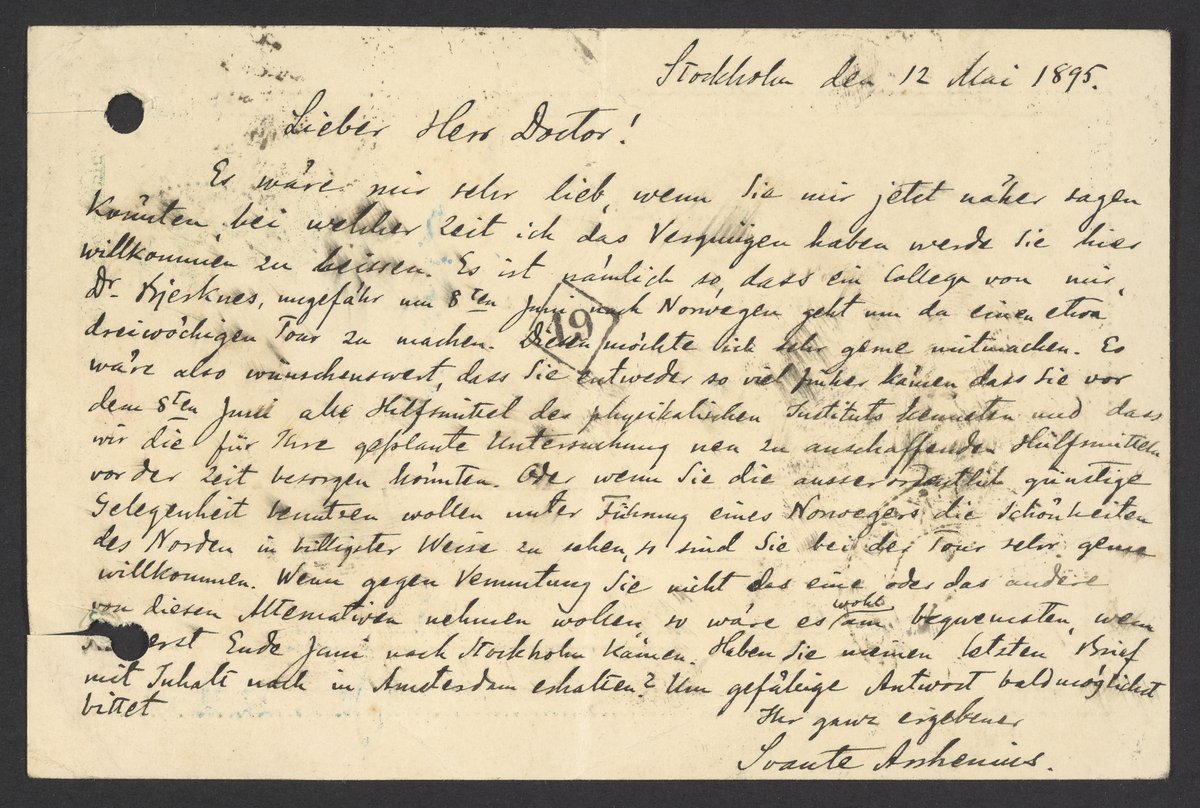 Stockholm den 12 Mai 1895.
Lieber Herr Doctor!
Es wäre mir sehr lieb, wenn Sie mir jetzt näher sagen
könnten, bei welcher Zeit ich das Vergnügen haben werde Sie hier
willkommen zu heissen. Es ist nämlich so, dass ein College von mir,
Dr. Bjerknes, ungefähr um 8ten Juni nach Norwegen geht um da einen etwa
19
dreiwöchigen Tour zu machen. Diesen möchte ich sehr gerne mitmachen. Es
wäre also wünschenswert, dass Sie entweder so viel früher kämen dass Sie vor
dem 8ten Juni alle Hilfsmittel des physikalischen Instituts kennten und dass
wir die für Ihre geplante Untersuchung neu zu anschaffenden Hülfsmitteln
vor der Zeit besorgen könnten. Oder wenn Sie die ausserordentlich günstige
Gelegenheit benutzen wollen unter Führung eines Norwegers die Schönheiten
des Norden in billigster Weise zu sehen, so sind Sie bei der Tour sehr gerne
willkommen. Wenn gegen Vermutung Sie nicht das eine oder das andere
von diesen Alternativen nehmen wollen, so wäre es wohl am bequemsten, wenn
erst Ende Juni nach Stockholm kämen. Haben Sie meinen letzten Brief
mit Inhalt nach in Amsterdam erhalten? Um gefällige Antwort baldmöglichst
bittet
Ihr ganz ergebener
Svante Arrhenius.